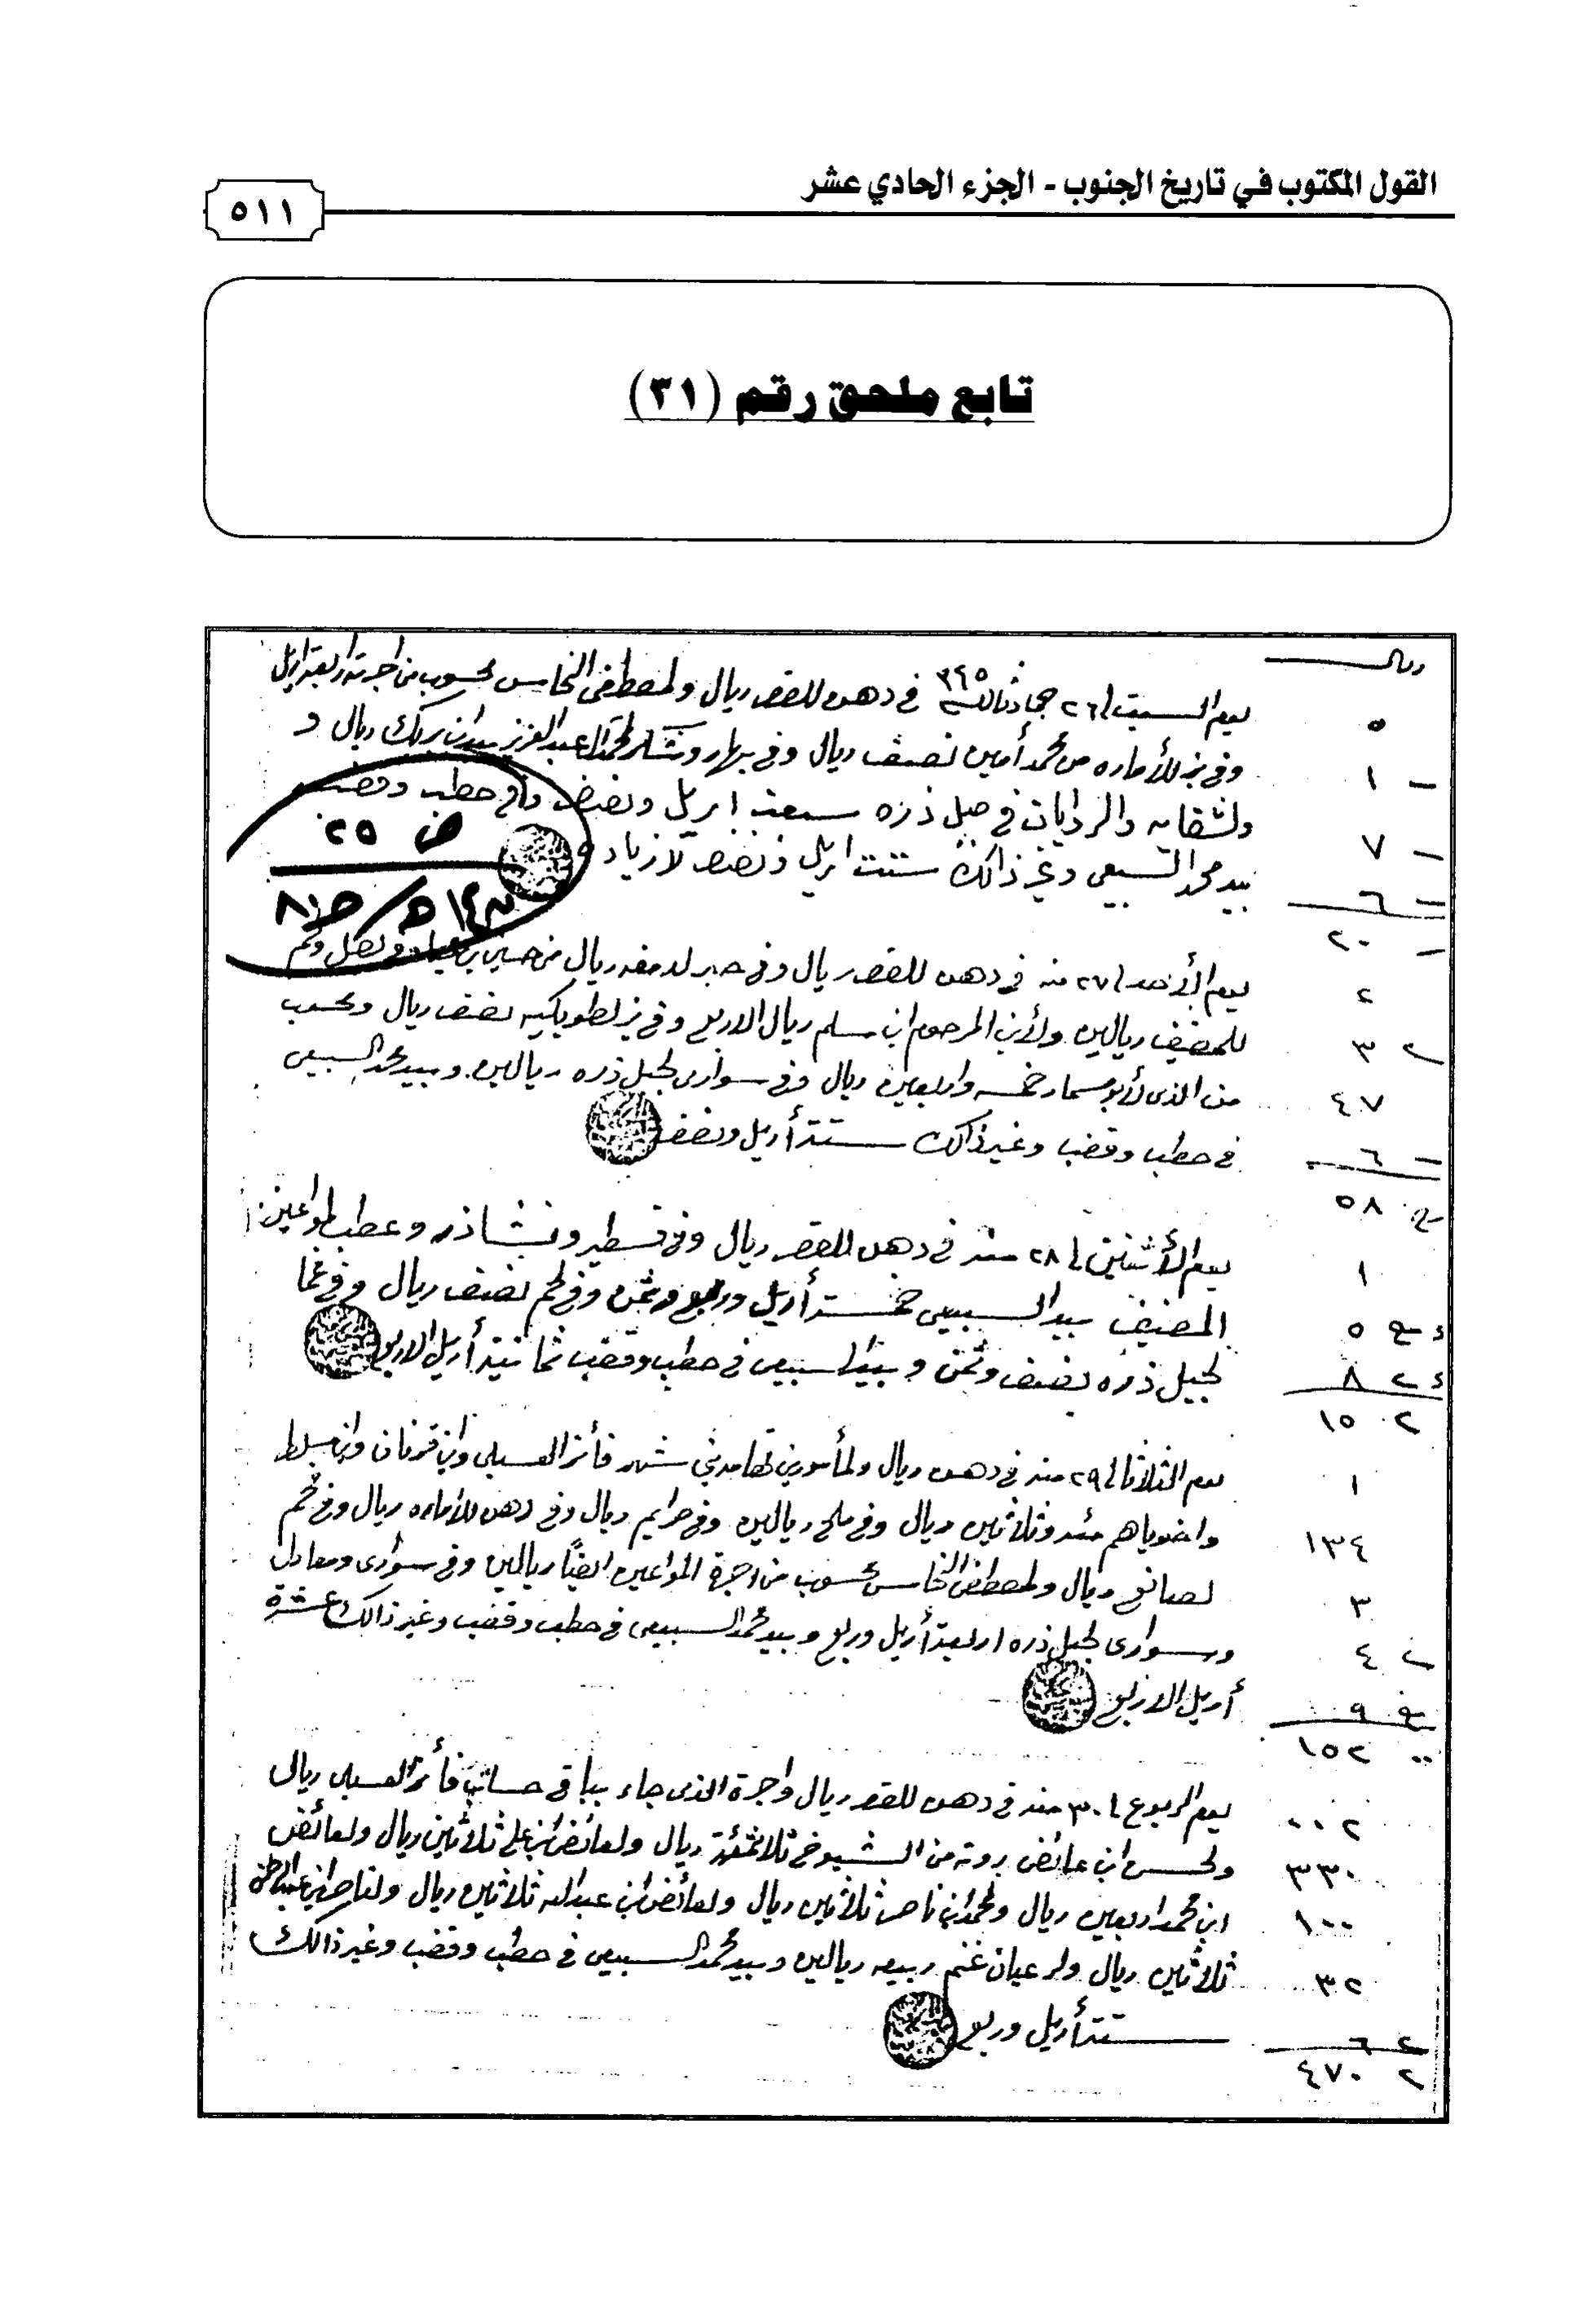 القول المكتوب في تاريخ الجنوب - الجزء الحادي عشر
٥١١
تابع ملحق رقم (٣١)
ريال
يوم السبت ٢٦ جماد ثاني سنة ٣٤٥ في دهن للقصر ريال ولمصطفى النحاس محسوب من اجرته اربعة اريل
٥
وفي بز للأماره من محمد أمين نصف ريال وفي بهار وشكر لمحمد العبد العزيز بيد ابن بريك ريال و
١
في حبل ذره سبعت اريل ونصف وفي حطب وقضب
٧
بيد محمد السبيعي وغير ذالك ستت اريل ونصف لا زياده
٦
٢٠
ص ٢٥
يوم الأحد ٢٧ منه في دهن للقصر ريال وفي حبر لدمغه ريال من حسين
٢
للمضيف ريالين ولأبن المرحوم ابن سلم ريال الاربع وفي بز لطوبكيه نصف ريال ومحسوب
٣
من الذي لأبو مسمار خمسه واربعين ريال وفي سواري لجبل ذره ريالين وبيد محمد السبيعي
٤٧
في حطب وقضب وغير ذالك ستة أريل ونصف
٦
٥٨
يوم الأثنين ٢٨ منه في دهن للقصر ريال وفي قسطير ونشاذر وعطب لمواعين
١
المضيف بيد السبيعي خمسة أريل وربع وثمن وفي لحم نصف ريال وفي
٥
لجبل ذره نصف وثمن وبيد السبيعي في حطب وقضب ثمانية أريل الاربع
٨
١٥
يوم الثلاثاء ٢٩ منه في دهن ريال ولمأمورين تهامه شهر فأئز العسبلي وابن قرنان وابن مسلط
١
واخوياهم مئه وثلاثين ريال وفي ملح ريالين وفي حرايم ريال وفي دهن للأماره ريال وفي لحم
١٣٤
لصانع ريال ولمصطفى النحاس محسوب من اجرة المواعين ايضًا ريالين وفي سواري ومعادل
٣
وسواري لجبل ذره اربعة أريل وربع وبيد محمد السبيعي في حطب وقضب وغير ذالك عشرة
٤
أريل الاربع
٩
١٥٢
يوم الربوع ٣٠ منه في دهن للقصر ريال واجرة الذي جاء بباقي حساب فأئز العسبلي ريال
٠٠٢
ولحسن ابن عائض بروته من الشيوخ ثلاثمئة ريال ولعائض ابن علي ثلاثين ريال ولعائض
٣٣٠
ابن محمد اربعين ريال ولمحمد ابن ناصر ثلاثين ريال ولعائض ابن عبدالله ثلاثين ريال ولناصر ابن
١٠٠
ثلاثين ريال ولرعيان غنم ربيعه ريالين وبيد محمد السبيعي في حطب وقضب وغير ذالك
٣٢
ستة أريل وربع
٦
٤٧٠